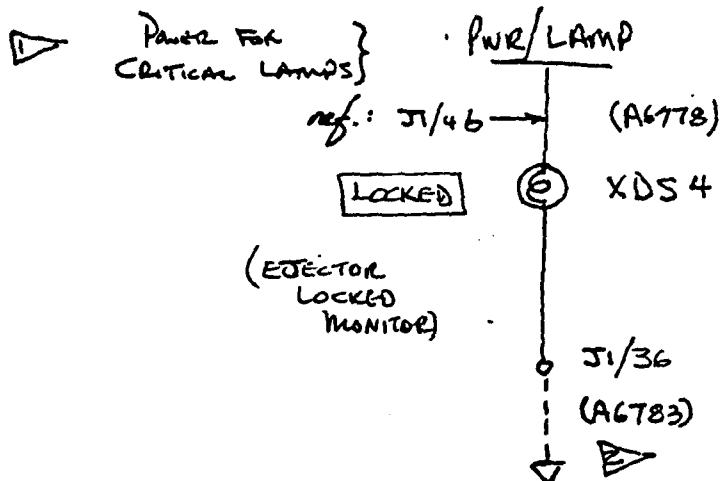 1
POWER FOR
CRITICAL LAMPS
PWR/LAMP
ref.: J1/46
(A6778)
LOCKED
XDS4
(EJECTOR
LOCKED
MONITOR)
J1/36
(A6783)
2